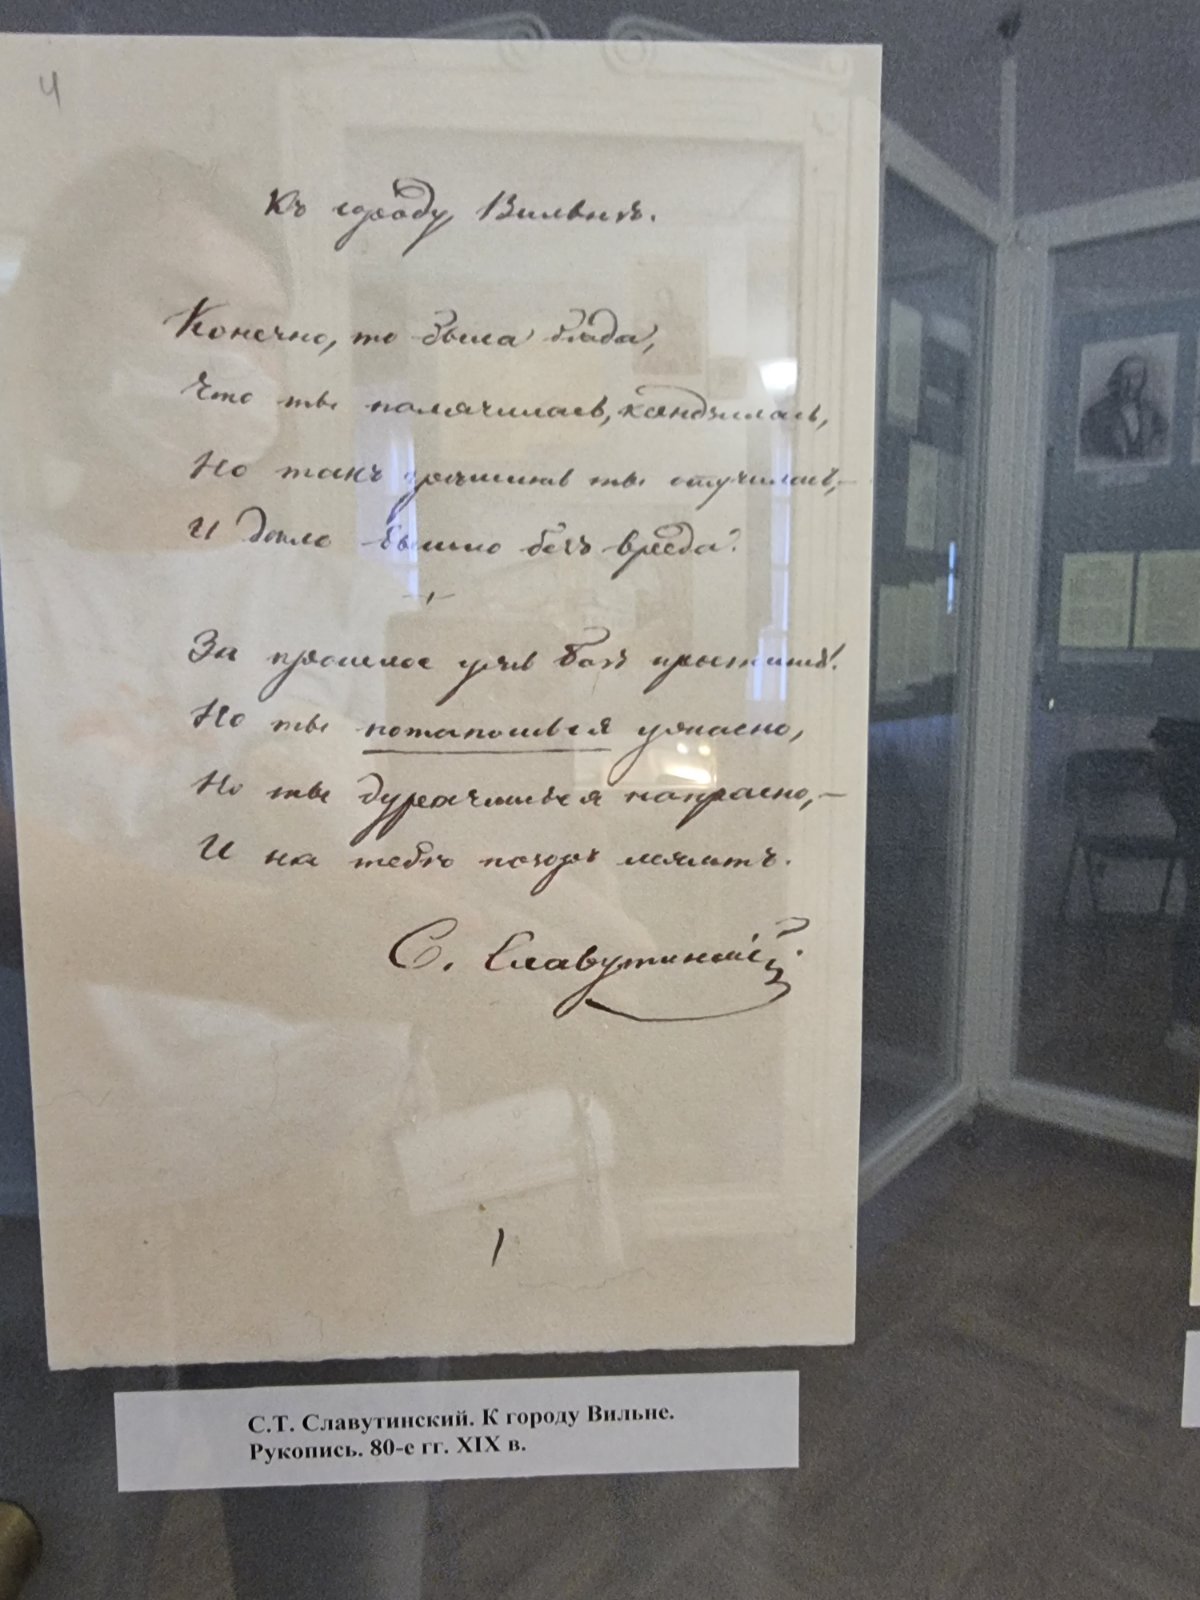 4
Къ городу Вильнѣ.
Конечно, то была бѣда,
Что ты полячилась, ксендзилась,
Но такъ грѣшить ты отучилась,—
И дѣло было безъ вреда.
За прошлое ужь Богъ проститъ!
Но ты ужасно,
Но ты дурачишься напрасно,—
И на тебѣ позоръ лежитъ.
С. Славутинскій.
С.Т. Славутинский. К городу Вильне.
Рукопись. 80-е гг. XIX в.